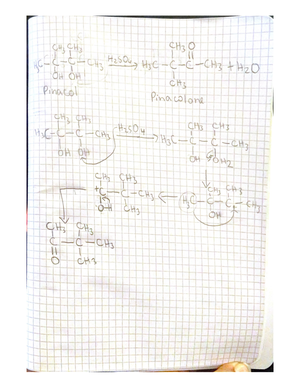 CH₃ CH₃ CH₃ O
H₃C-C-C-CH₃ H₂SO₄ H₃C-C-C-CH₃ + H₂O
OH OH CH₃
Pinacol Pinacolone
CH₃ CH₃ CH₃ CH₃
H₃C-C-C-CH₃ H₂SO₄ H₃C-C-C-CH₃
OH OH OH OH₂
CH₃ CH₃ CH₃ CH₃
+C-C-CH₃ H₃C-C-C-CH₃
OH CH₃ OH
CH₃ CH₃
C-C-CH₃
O CH₃